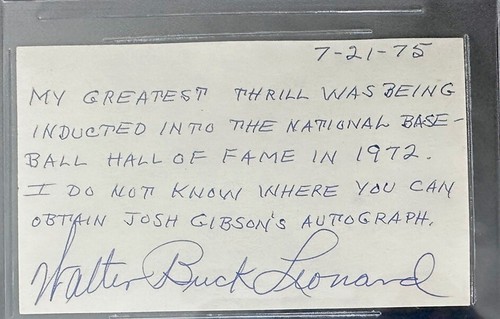 7-21-75
MY GREATEST THRILL WAS BEING
INDUCTED INTO THE NATIONAL BASE-
BALL HALL OF FAME IN 1972.
I DO NOT KNOW WHERE YOU CAN
OBTAIN JOSH GIBSON'S AUTOGRAPH.
Walter Buck Leonard